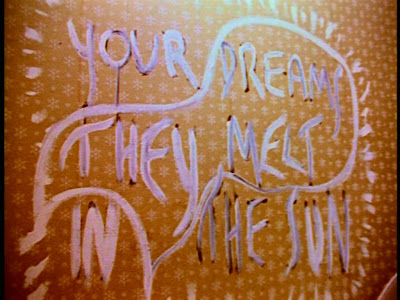 YOUR DREAMS
THEY MELT
IN THE SUN